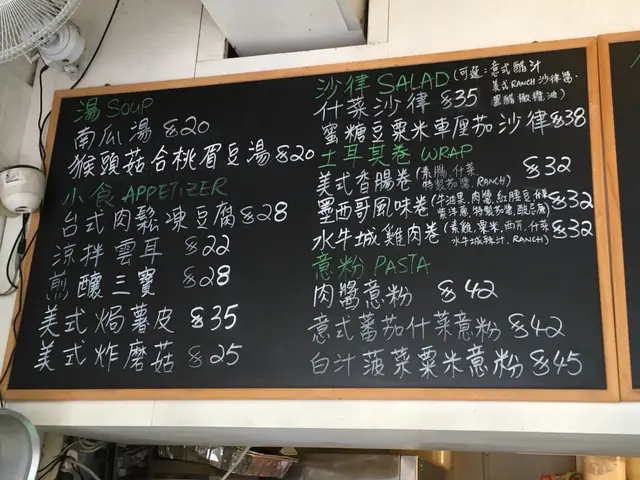 湯 SOUP
南瓜湯 $20
猴頭菇合桃眉豆湯 $20
小食 APPETIZER
台式肉鬆凍豆腐 $28
涼拌雲耳 $22
煎釀三寶 $28
美式焗薯皮 $35
美式炸磨菇 $25
沙律 SALAD (可選:意式醋汁
美式RANCH沙律醬.
黑醋橄欖油)
什菜沙律 $35
蜜糖豆粟米車厘茄沙律 $38
土耳其卷 WRAP
美式香腸卷 (素腸,什菜 $32
特製茄醬, RANCH)
墨西哥風味卷 (牛油果,肉醬,紅腰豆, $32
特製茄醬,酸忌廉)
水牛城雞肉卷 (素雞,粟米,西芹,什菜 $32
水牛城辣汁, RANCH)
意粉 PASTA
肉醬意粉 $42
意式蕃茄什菜意粉 $42
白汁菠菜粟米意粉 $45